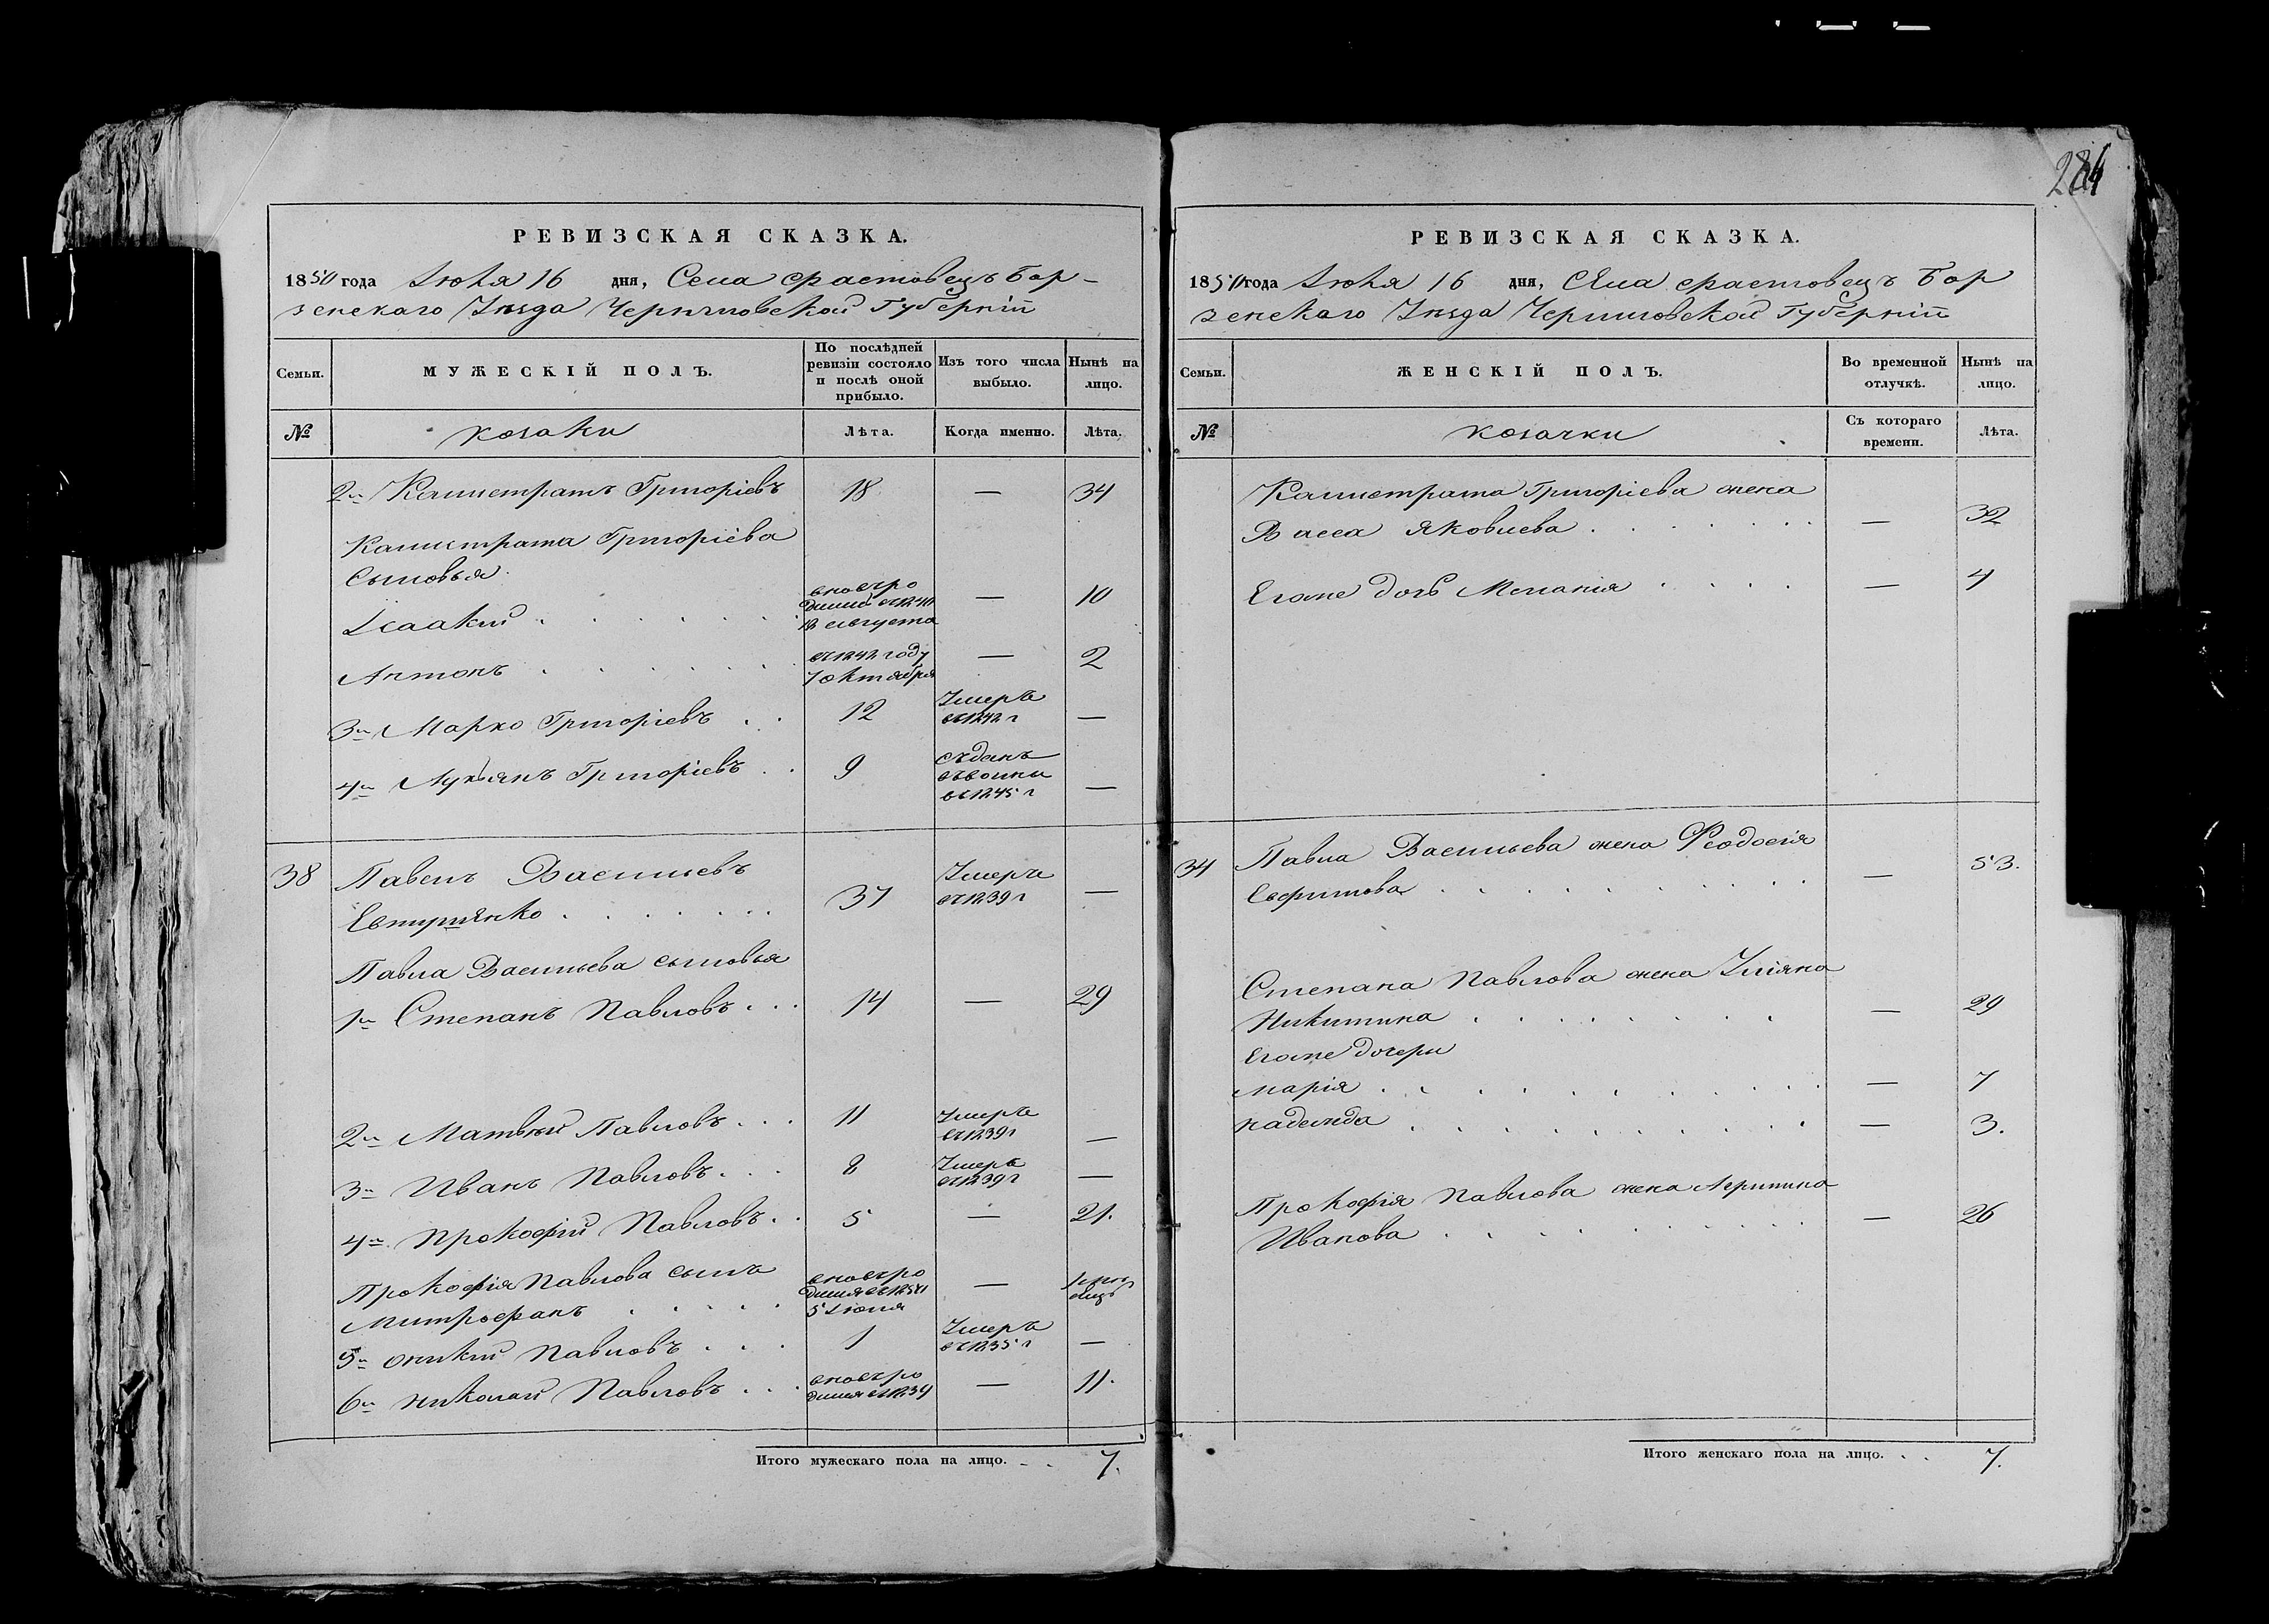 284
РЕВИЗСКАЯ СКАЗКА.
1850 года Июня 16 дня, Села Фастовецъ Бор-
зенскаго Уѣзда Черниговской Губерніи
Семьи.
МУЖЕСКІЙ ПОЛЪ.
По послѣдней ревизіи состояло и послѣ оной прибыло.
Изъ того числа выбыло.
Нынѣ на лицо.
№
козаки
Лѣта.
Когда именно.
Лѣта.
2й Калистратъ Григоріевъ 18 — 34
Калистрата Григоріева
Сыновья
Исаакій — 10
Антонъ — 2
3й Марко Григоріевъ 12 Умеръ —
4й Лукьянъ Григоріевъ 9 Сданъ —
38 Павелъ Васильевъ
Евтушенко 37 Умеръ —
Павла Васильева сыновья
1й Степанъ Павловъ 14 — 29
2й Матвѣй Павловъ 11 Умеръ —
3й Иванъ Павловъ 8 Умеръ —
4й Прокофій Павловъ 5 — 21.
Прокофія Павлова сынъ
Митрофанъ —
5й Оникій Павловъ 1 Умеръ —
6й Николай Павловъ — 11.
Итого мужескаго пола на лицо. 7.
РЕВИЗСКАЯ СКАЗКА.
1850 года Июня 16 дня, Села Фастовецъ Бор
зенскаго Уѣзда Черниговской Губерніи
Семьи.
ЖЕНСКІЙ ПОЛЪ.
Во временной отлучкѣ.
Нынѣ на лицо.
№
козачки
Съ котораго времени.
Лѣта.
Калистрата Григоріева жена
Васса Яковлева — 32
Егоже дочь Меланія — 4
34 Павла Васильева жена Феодосія
Ефимова — 53.
Степана Павлова жена Уліяна
Никитина — 29
Егоже дочери
Марія — 7
Надежда — 3.
Прокофія Павлова жена Агрипина
Иванова — 26
Итого женскаго пола на лицо. 7.